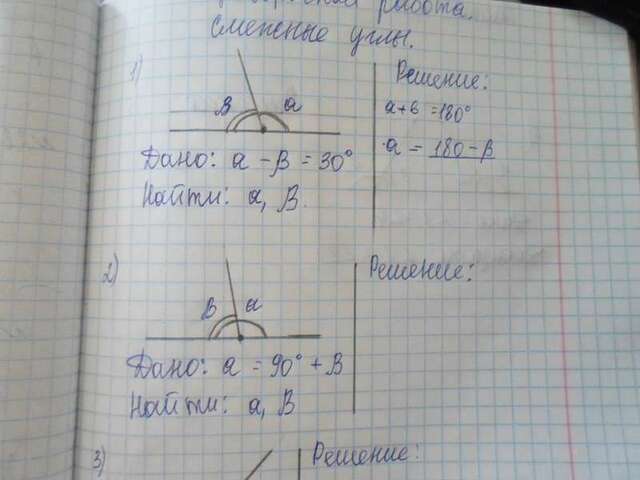 работа.
Смежные углы.
1)
β a
Дано: a - β = 30°
Найти: a, β.
Решение:
a + в = 180°
a = 180 - β
2)
β a
Дано: a = 90° + β
Найти: a, β
Решение:
3)
Решение: